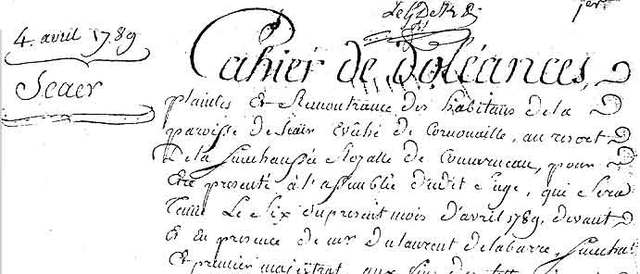 4 avril 1789
Scaer
Cahier de doléances,
plaintes Et Remontrance des habitans de la
paroisse de Scair Evêché de Cornouaille, au ressort
De la Senechaussée Royalle de Concarneau, pour
Etre presenté à l'assemblée dudit siege, qui sera
Tenue Le six du present mois d'avril 1789. devant
Et En presence de mr dulaurent delabarre, Senechal
Et premier magistrat aux fins de